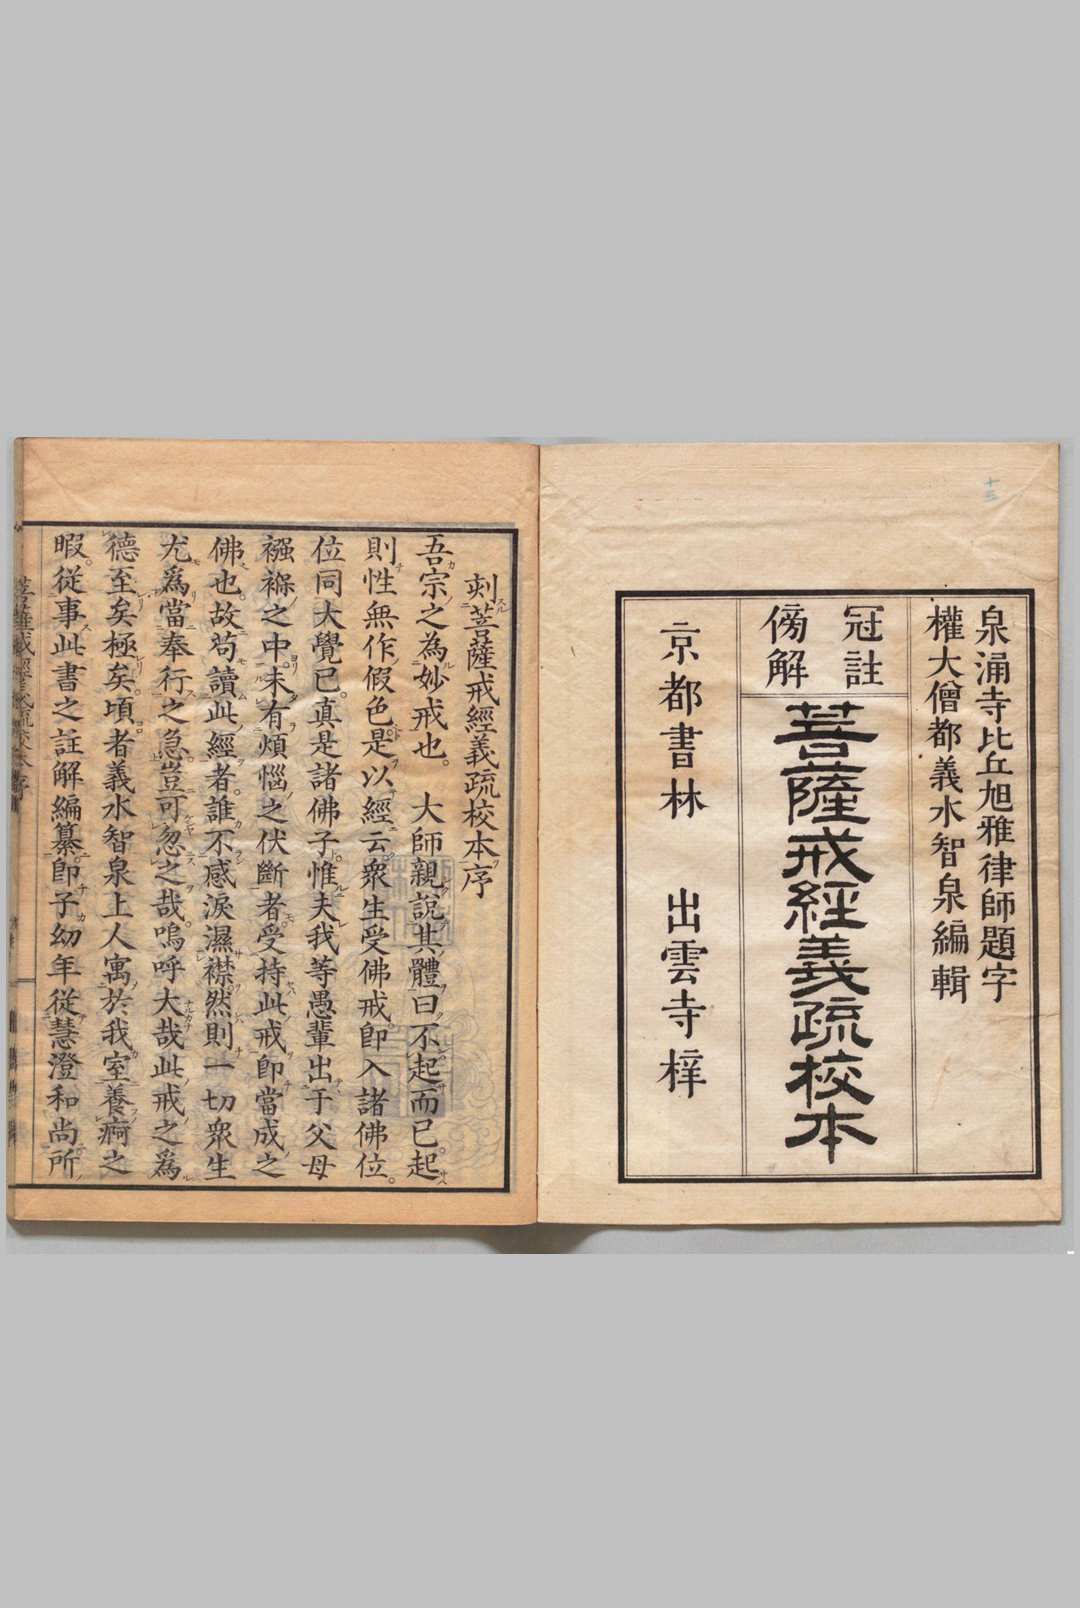 十三
泉涌寺比丘旭雅律師題字
權大僧都義水智泉編輯
冠註
傍解
菩薩戒經義疏校本
京都書林　出雲寺梓
刻菩薩戒經義疏校本序
吾宗之為妙戒也。　大師親說其體曰不起而已起
則性無作假色是以經云衆生受佛戒卽入諸佛位。
位同大覺已。真是諸佛子惟夫我等愚輩出于父母
襁褓之中未有煩惱之伏斷者受持此戒卽當成之
佛也。故苟讀此經者。誰不感淚濕襟然則一切衆生
尤爲當奉行之急豈可忽之哉。嗚呼大哉此戒之爲
德至矣極矣。頃者義水智泉上人寓於我室養痾之
暇。從事此書之註解編纂卽予幼年從慧澄和尚所